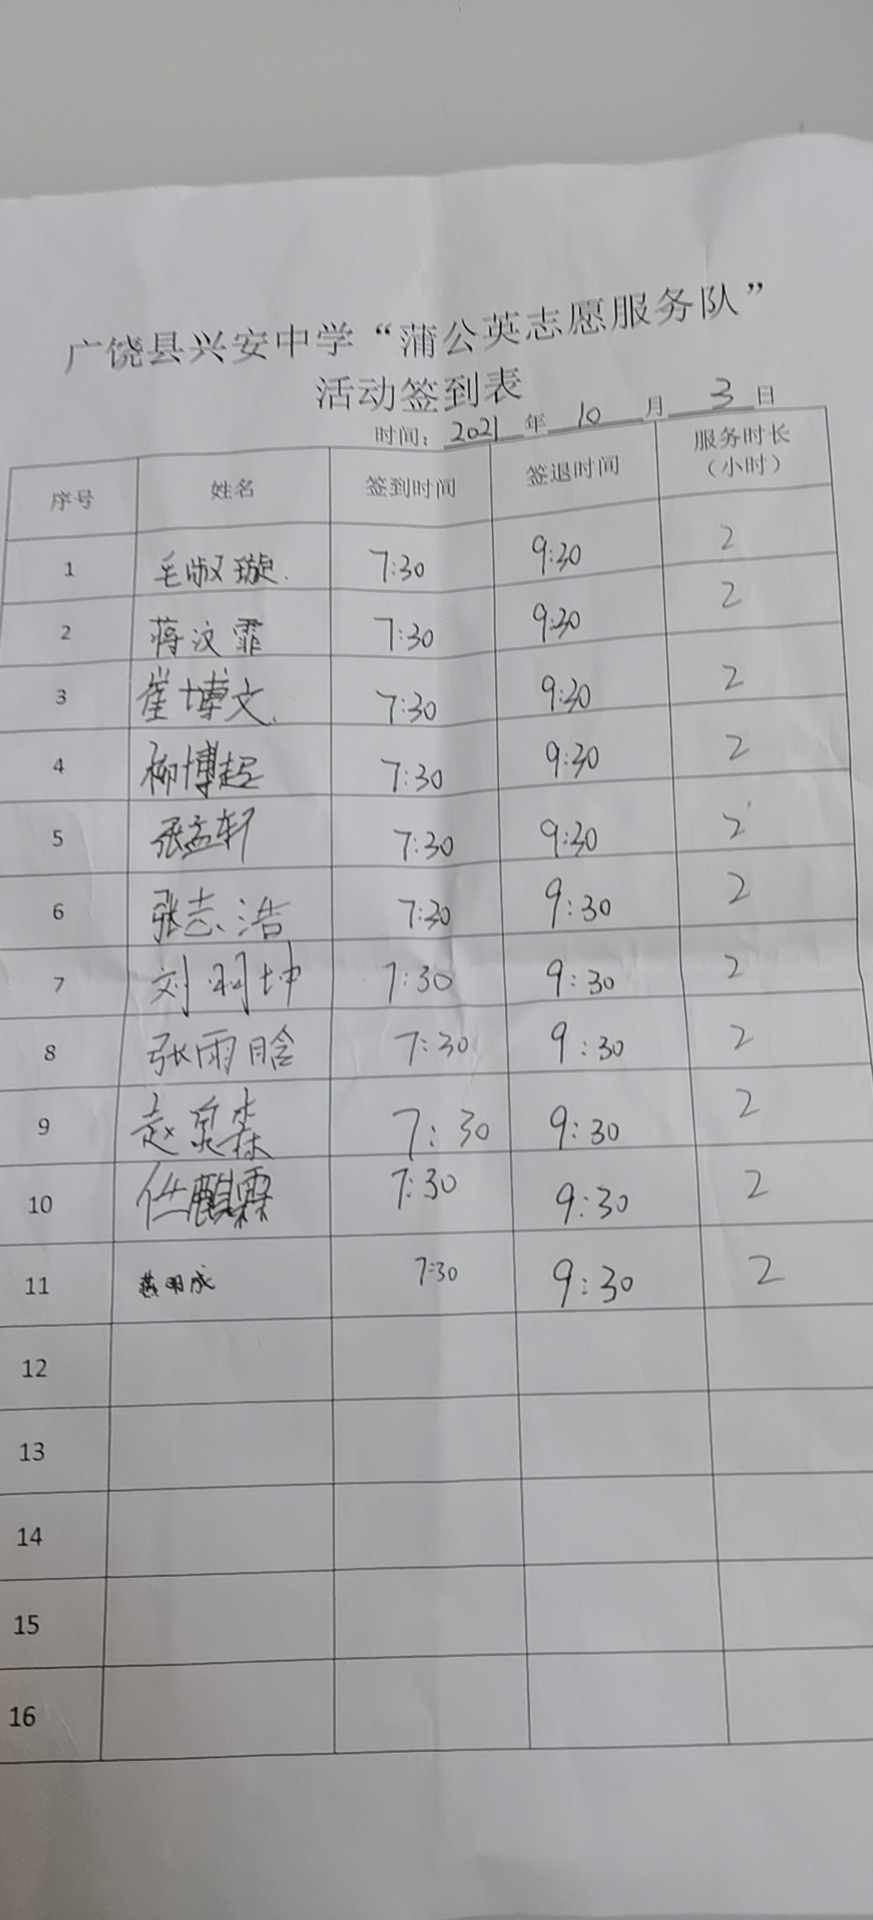 广饶县兴安中学“蒲公英志愿服务队”
活动签到表
时间：2021年10月3日
序号 姓名 签到时间 签退时间 服务时长（小时）
1 毛淑璇 7:30 9:30 2
2 蒋汶霏 7:30 9:30 2
3 崔博文 7:30 9:30 2
4 柳博超 7:30 9:30 2
5 张孟轩 7:30 9:30 2
6 张志浩 7:30 9:30 2
7 刘羽坤 7:30 9:30 2
8 张雨晗 7:30 9:30 2
9 赵泉森 7:30 9:30 2
10 任麒霖 7:30 9:30 2
11 7:30 9:30 2
12
13
14
15
16